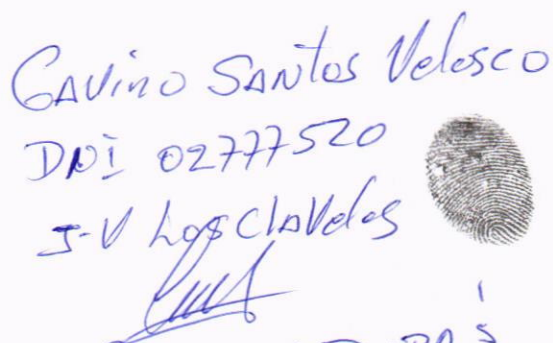 GAVINO SANTOS Velosco
DNI 02777520
J-V Los ClaVeles